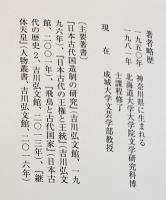 著者略歴
一九五〇年 神奈川県に生まれる
一九八八年 北海道大学大学院文学研究科博
士課程修了
現在 成城大学文芸学部教授
〔主要著書〕
『日本古代国造制の研究』(吉川弘文館、一九
九六年)、『日本古代の王権と王統』(吉川弘文
館、二〇〇一年)、『飛鳥と古代国家』〈日本古
代の歴史2、吉川弘文館、二〇一三年〉、『継
体天皇』〈人物叢書、吉川弘文館、二〇一六年〉